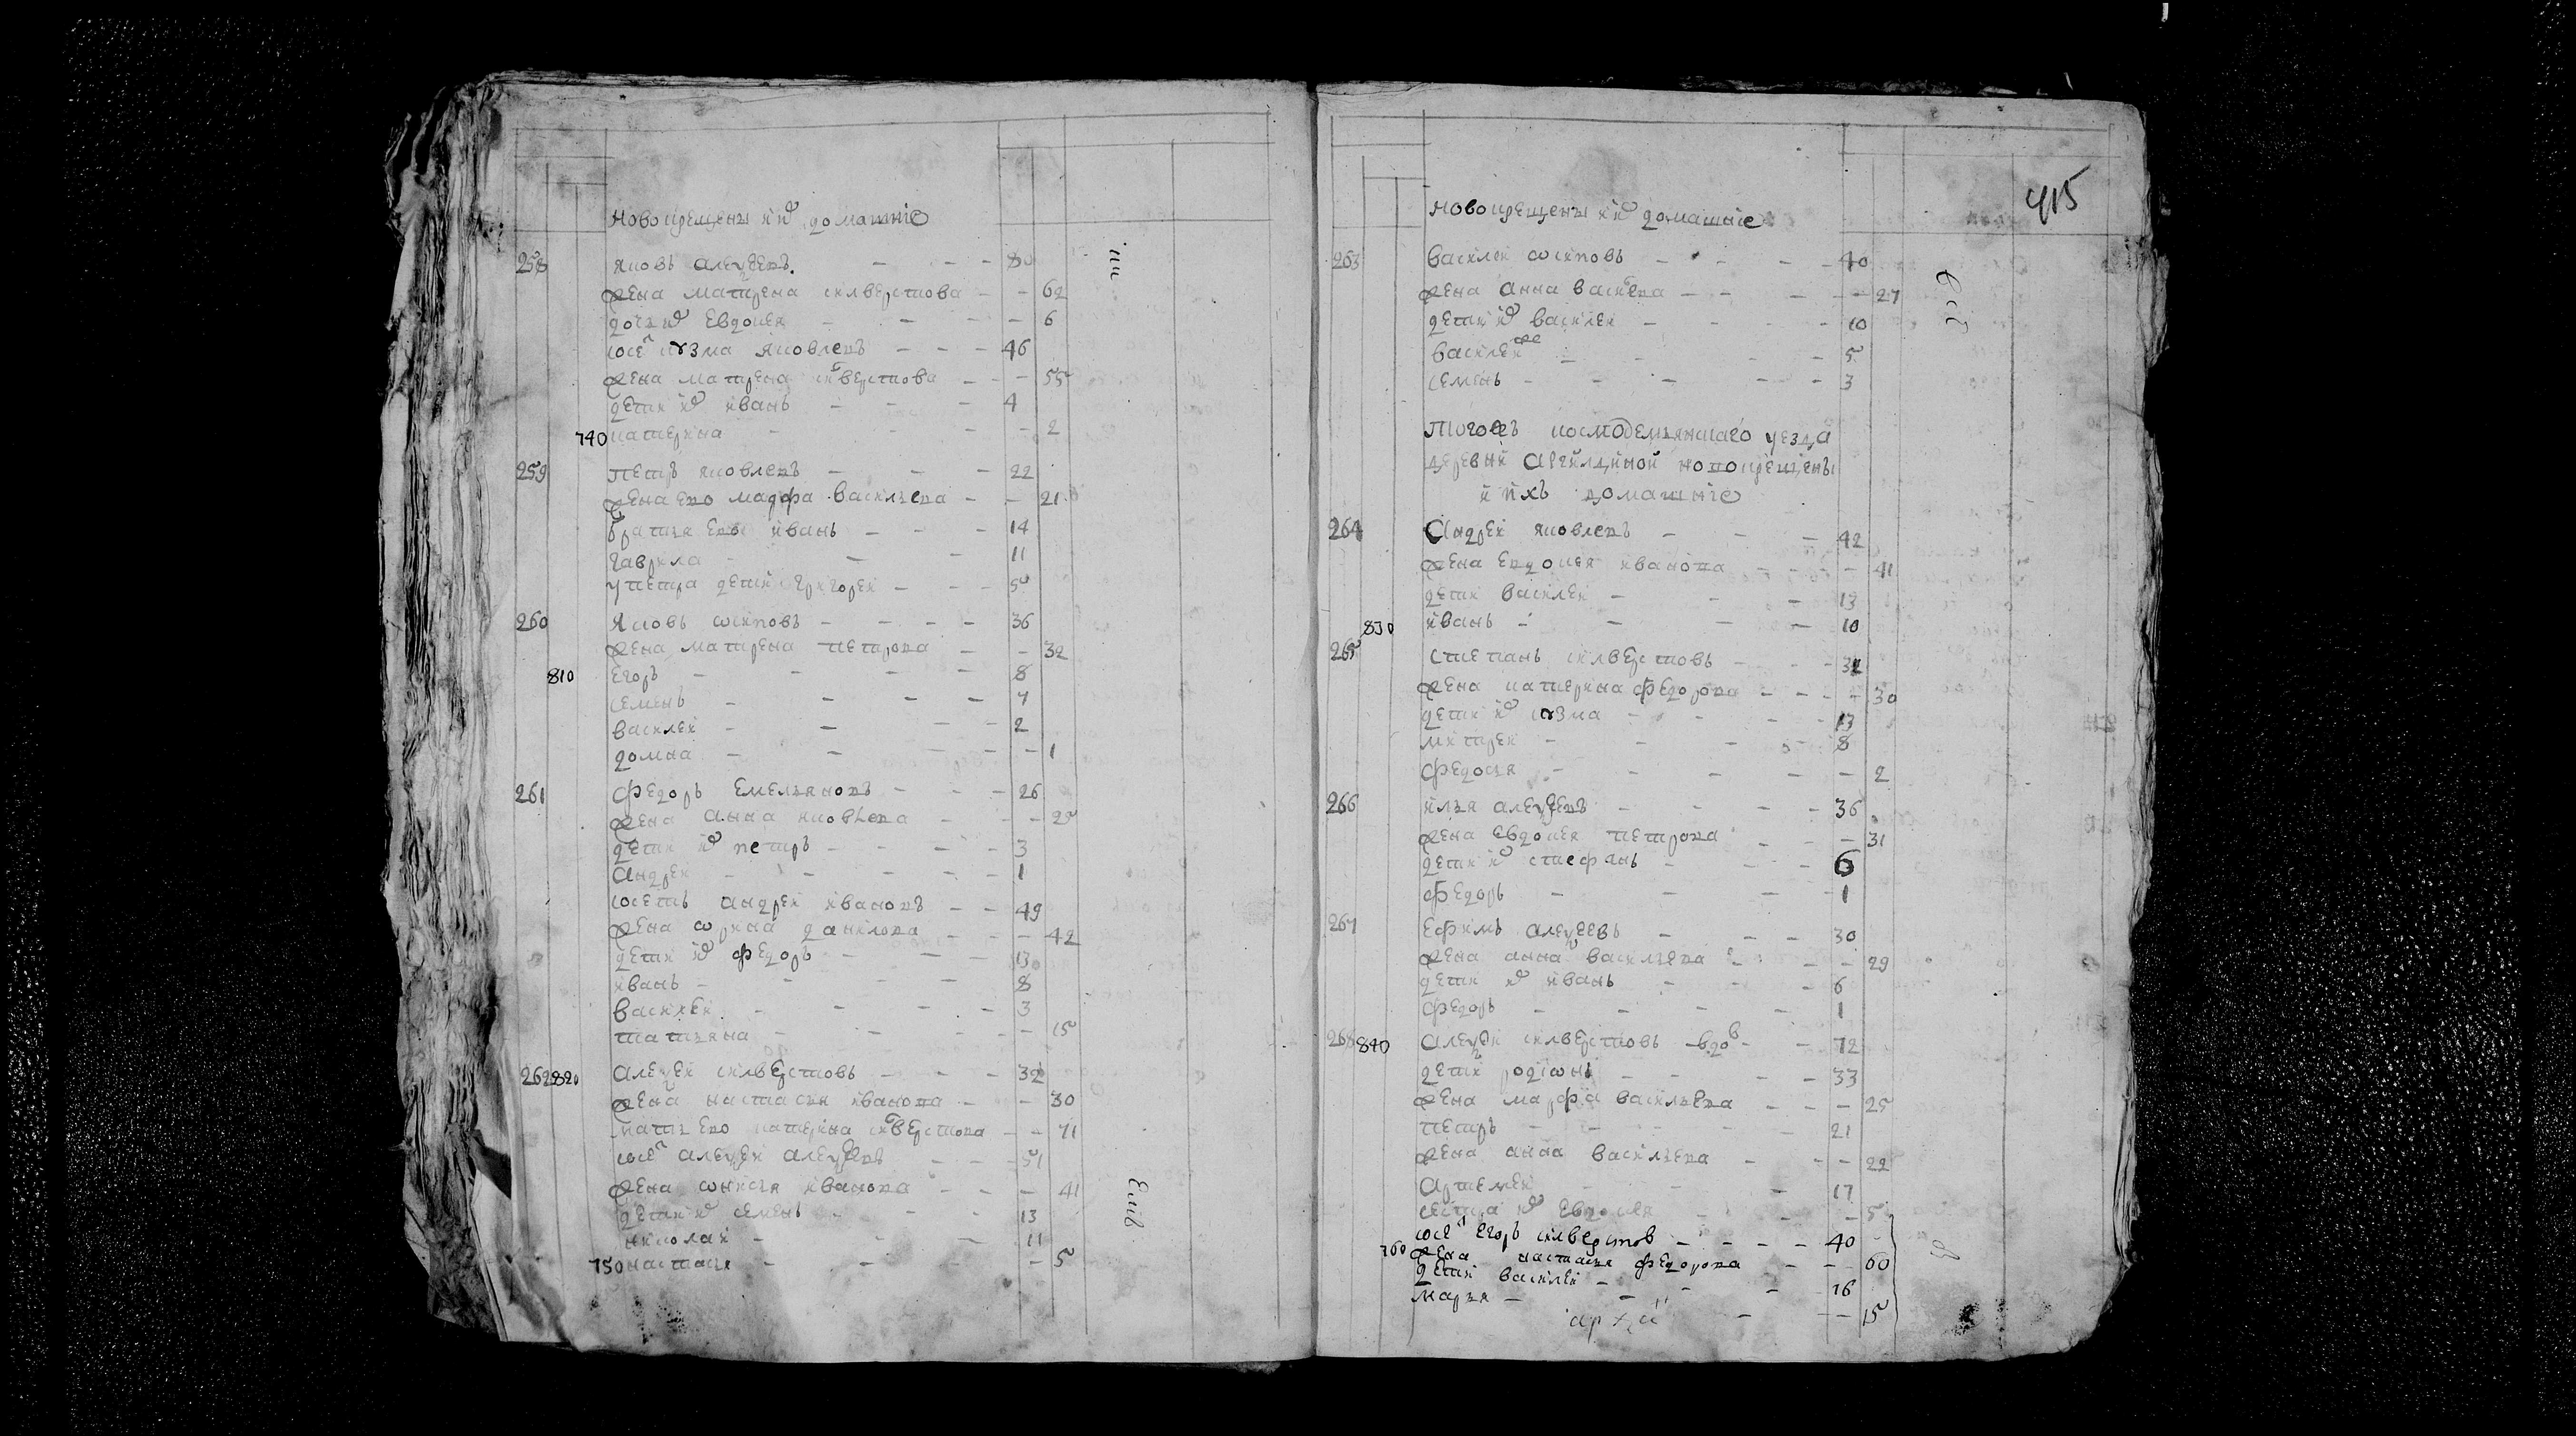 новокрещены и их домашніе
258 яковъ алеѯеевъ 80
жена матрена силверстова 62
дочь их евдокея 6
сосед кузма яковлевъ 46
жена матрена силверстова 55
дети их иванъ 4
740 катерина 2
259 петръ яковлевъ 22
жена ево марфа василъева 21
братъя ево иванъ 14
гаврила 11
у петра дети григореи 5
260 яковъ осиповъ 36
жена матрена петрова 32
810 егоръ 8
семенъ 7
василеи 2
домна 1
261 федоръ емелъяновъ 26
жена анна яковлева 25
дети их петръ 3
андреи 1
соседъ андреи ивановъ 49
жена орина данилова 42
дети их федоръ 13
иванъ 8
василеи 3
татъяна 15
262 820 алеѯеи силверстовъ 32
жена настасия иванова 30
матъ ево катерина силверстова 71
сосед алеѯеи алеѯеевъ 51
жена онисъя иванова 41
дети их семенъ 13
николаи 11
750 настасъя 5
415
новокрещены и их домашніе
263 василеи осиповъ 40
жена анна василева 27
дети их василеи 10
василеи же 5
семенъ 3
тогожъ космодемъянскаго уезда
деревни новокрещены
и ихъ домашніе
264 андреи яковлевъ 42
жена евдокея иванова 41
дети василеи 13
830 иванъ 10
265 степанъ силверстовъ 32
жена катерина федорова 30
дети их кузма 13
митреи 8
федосъя 2
266 илъя алеѯеевъ 36
жена евдокея петрова 31
дети их стефанъ 6
федоръ 1
267 ефимъ алеѯеевъ 30
жена анна василъева 29
дети их иванъ 6
федоръ 1
268 840 алеѯеи силверстовъ вдов 72
дети родіонъ 33
жена марфа василъева 25
петръ 21
жена анна василъева 22
артемеи 17
сестра их евдокея 5
сосед егоръ силверстов 40
760 жена настасъя федорова 60
дети василеи 16
маръя 15